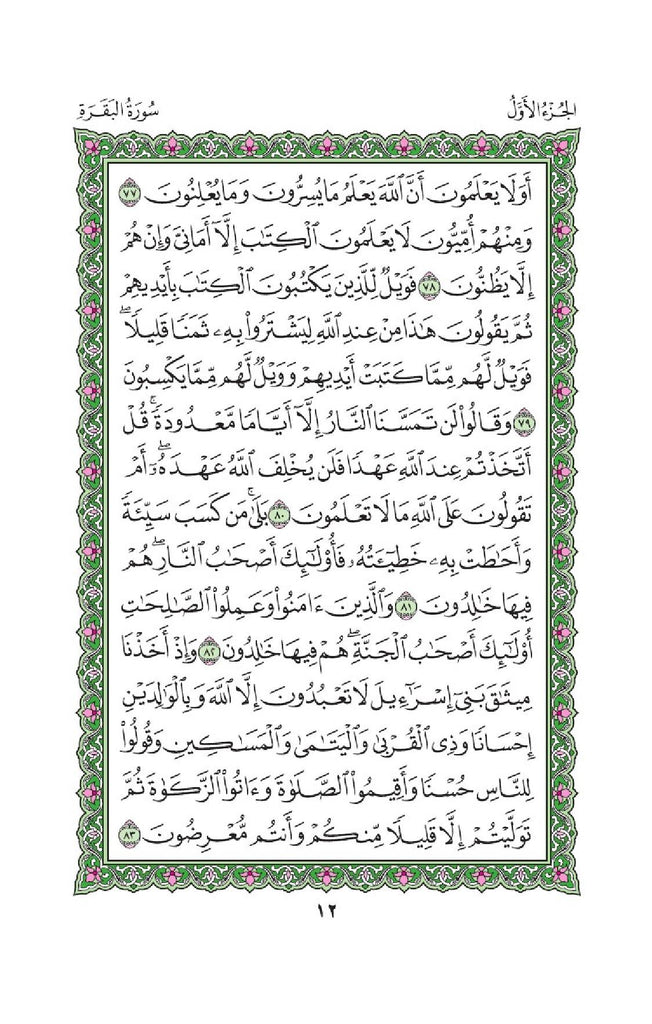 الجُزْءُ الأَوَّلُ
سُورَةُ البَقَرَةِ
أَوَلَا يَعْلَمُونَ أَنَّ ٱللَّهَ يَعْلَمُ مَا يُسِرُّونَ وَمَا يُعْلِنُونَ ٧٧
وَمِنْهُمْ أُمِّيُّونَ لَا يَعْلَمُونَ ٱلْكِتَٰبَ إِلَّآ أَمَانِيَّ وَإِنْ هُمْ
إِلَّا يَظُنُّونَ ٧٨ فَوَيْلٌ لِّلَّذِينَ يَكْتُبُونَ ٱلْكِتَٰبَ بِأَيْدِيهِمْ
ثُمَّ يَقُولُونَ هَٰذَا مِنْ عِندِ ٱللَّهِ لِيَشْتَرُوا۟ بِهِۦ ثَمَنًا قَلِيلًا ۖ
فَوَيْلٌ لَّهُم مِّمَّا كَتَبَتْ أَيْدِيهِمْ وَوَيْلٌ لَّهُم مِّمَّا يَكْسِبُونَ
٧٩ وَقَالُوا۟ لَن تَمَسَّنَا ٱلنَّارُ إِلَّآ أَيَّامًا مَّعْدُودَةً ۚ قُلْ
أَتَّخَذْتُمْ عِندَ ٱللَّهِ عَهْدًا فَلَن يُخْلِفَ ٱللَّهُ عَهْدَهُۥٓ ۖ أَمْ
تَقُولُونَ عَلَى ٱللَّهِ مَا لَا تَعْلَمُونَ ٨٠ بَلَىٰ ۚ مَن كَسَبَ سَيِّئَةً
وَأَحَٰطَتْ بِهِۦ خَطِيٓـَٔتُهُۥ فَأُو۟لَٰٓئِكَ أَصْحَٰبُ ٱلنَّارِ ۖ هُمْ
فِيهَا خَٰلِدُونَ ٨١ وَٱلَّذِينَ ءَامَنُوا۟ وَعَمِلُوا۟ ٱلصَّٰلِحَٰتِ
أُو۟لَٰٓئِكَ أَصْحَٰبُ ٱلْجَنَّةِ ۖ هُمْ فِيهَا خَٰلِدُونَ ٨٢ وَإِذْ أَخَذْنَا
مِيثَٰقَ بَنِىٓ إِسْرَٰٓءِيلَ لَا تَعْبُدُونَ إِلَّا ٱللَّهَ وَبِٱلْوَٰلِدَيْنِ
إِحْسَانًا وَذِى ٱلْقُرْبَىٰ وَٱلْيَتَٰمَىٰ وَٱلْمَسَٰكِينِ وَقُولُوا۟
لِلنَّاسِ حُسْنًا وَأَقِيمُوا۟ ٱلصَّلَوٰةَ وَءَاتُوا۟ ٱلزَّكَوٰةَ ثُمَّ
تَوَلَّيْتُمْ إِلَّا قَلِيلًا مِّنكُمْ وَأَنتُم مُّعْرِضُونَ ٨٣
١٢